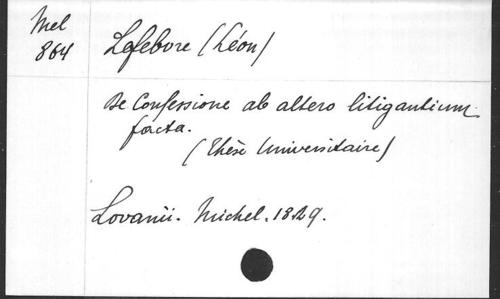 Mel
864
Lefebvre (Léon)
De Confessione ab altero litigantium
facta.
(Thèse Universitaire)
Lovanii. Michel. 1829.